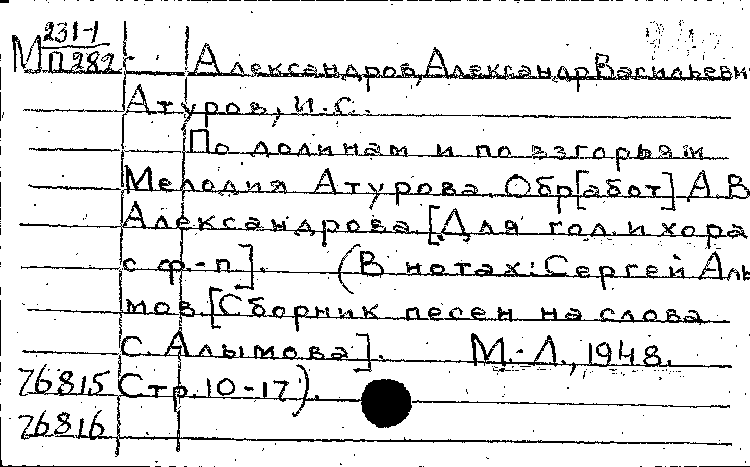 М 231-1
П 282
Александров, Александр Васильевич
Атуров, И.С.
По долинам и по взгорьям
Мелодия Атурова. Обр[абот] А.В.
Александрова. [Для гол. и хора
с ф.-п]. (В нотах: Сергей Алы-
мов. [Сборник песен на слова
С. Алымова]. М.-Л., 1948.
76815 Стр. 10-17).
76816